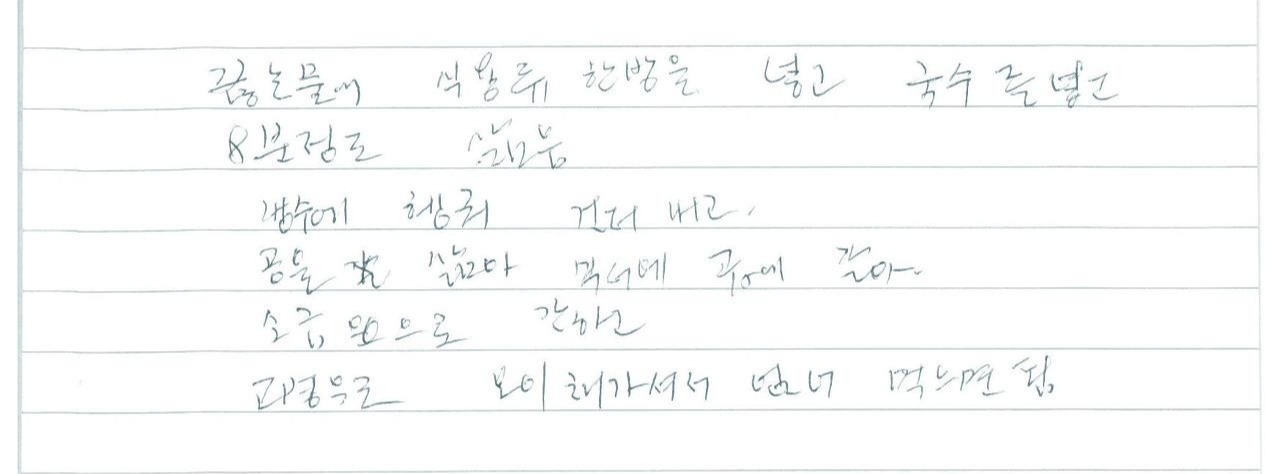 끓는물에 식용류 한방울 넣고 국수를 넣고
8분정도 삶음
냉수에 헹궈 건더 내고,
콩을 삶아 믹서에 곱에 갈아.
소금으로 간하고
고명으로 오이 채가셔서 넘너 먹느면 됨